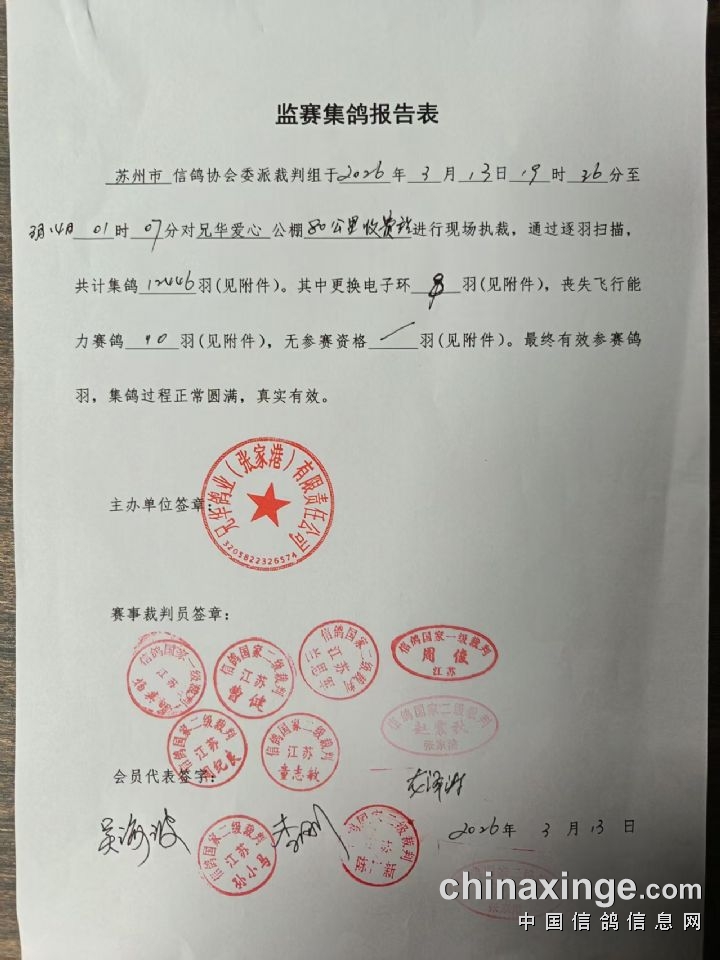 监赛集鸽报告表
苏州市 信鸽协会委派裁判组于2026年3月13日19时26分至
3月14日01时07分对兄华爱心公棚80公里收费站进行现场执裁，通过逐羽扫描，
共计集鸽12446羽(见附件)。其中更换电子环8羽(见附件)，丧失飞行能
力赛鸽10羽(见附件)，无参赛资格/羽(见附件)。最终有效参赛鸽
羽，集鸽过程正常圆满，真实有效。
兄华鸽业（张家港）有限责任公司
3205822326574
主办单位签章：
赛事裁判员签章：
信鸽国家二级裁判
江苏
信鸽国家二级裁判
江苏
曾健
信鸽国家二级裁判
江苏
信鸽国家一级裁判
周俊
江苏
信鸽国家二级裁判
张家港
信鸽国家二级裁判
江苏
信鸽国家二级裁判
江苏
童志敏
会员代表签字：
吴海波
信鸽国家二级裁判
江苏
孙小马
李刚
2026年3月13日
chinaxinge.com
中国信鸽信息网